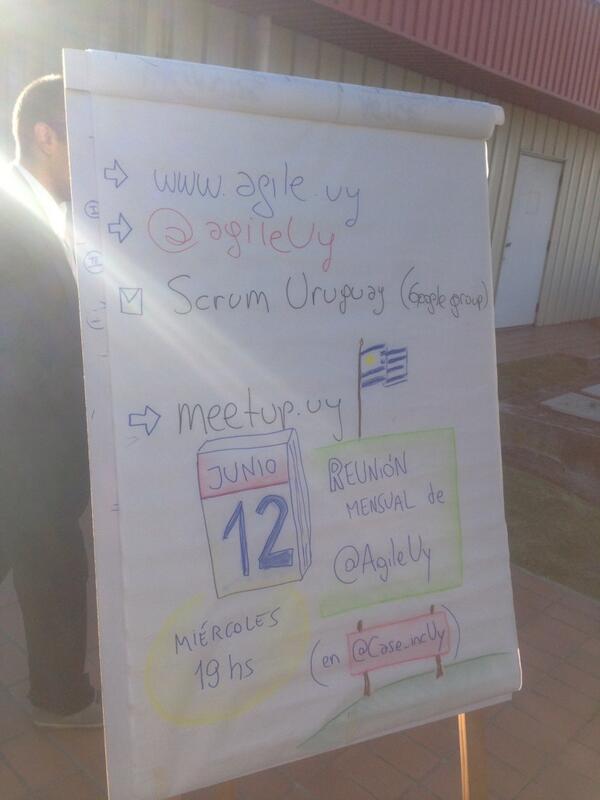 www.agile.uy
@agileUy
Scrum Uruguay (Google group)
meetup.uy
JUNIO
12
REUNIÓN
MENSUAL de
@AgileUy
MIÉRCOLES
19 hs
(en @Case_incUy)